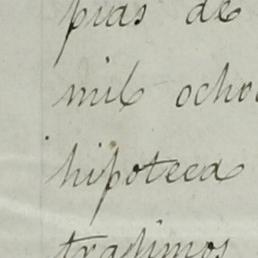 pias de
mil ocho
hipoteca